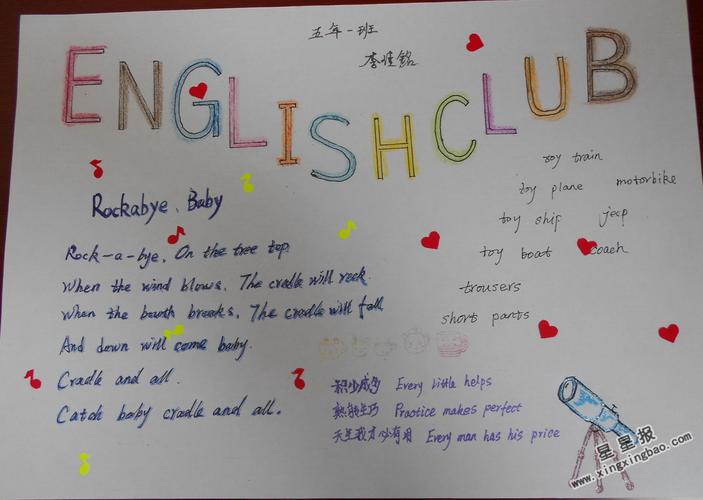 五年一班
李佳铭
ENGLISH CLUB
Rockabye, Baby
Rock-a-bye, On the tree top.
When the wind blows, The cradle will rock.
When the bowth breaks, The cradle will fall
And down will come baby.
Cradle and all.
Catch baby cradle and all.
toy train
toy plane motorbike
toy ship jeep
toy boat coach
trousers
short pants
积少成多 Every little helps
熟能生巧 Practice makes perfect
天生我才必有用 Every man has his price
星星报
www.xingxingbao.com